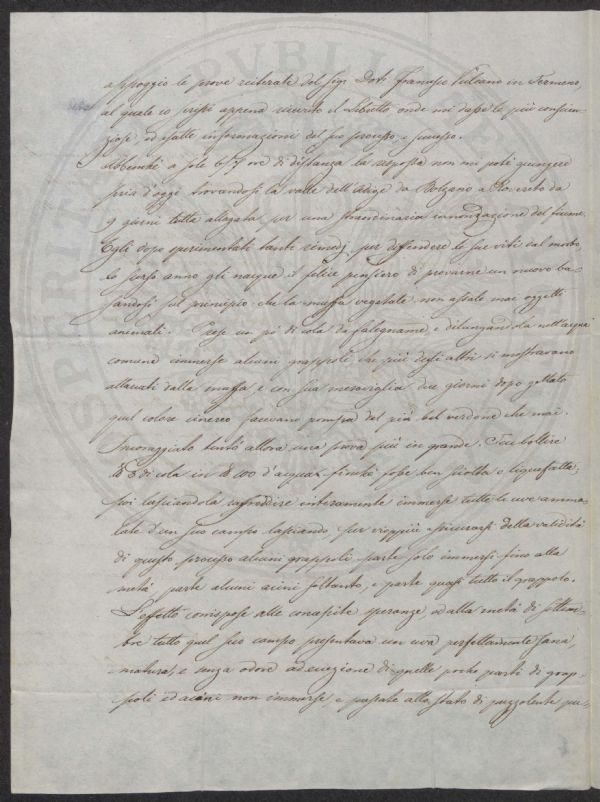 appoggio le prove reiterate del Sigr Dotr Francesco Vulcano in Termeno,
al quale io scrissi appena ricevuto il Libretto onde mi dasse le più coscien-
ziose, ed esatte informazioni del suo processo, e successo.
Abbenchè a sole 6/7 ore di distanza la risposta non mi potè giungere
pria d'oggi trovandosi la valle dell'Adige da Bolzano a Rovereto da
9 giorni tutta allagata per una straordinaria innondazione del fiume.
Egli dopo sperimentati tanti rimedj per difendere le sue viti dal morbo,
lo scorso anno gli nacque il felice pensiero di provarne un nuovo ba-
sandosi sul principio che la muffa vegetale non assale mai oggetti
animali. Prese un pò di cola da falegname, e dilungandola nell'acqua
comune immerse alcuni grappoli, che più degli altri si mostravano
attaccati dalla muffa, e con sua meraviglia due giorni dopo gettato
quel colore cinereo facevano pompa del più bel verdone che mai.
Incoraggiato tentò allora una prova più in grande. Fece bollire
℔ 3 di cola in ℔ 100 d'acqua finchè fosse ben sciolta e liquefatta;
poi lasciandola raffreddire interamente immerse tutte le uve amma-
late d'un suo campo lasciando per vieppiù assicurarsi della validità
di questo processo alcuni grappoli parte solo immersi fino alla
metà, parte alcuni acini soltanto, e parte quasi tutto il grappolo.
L'effetto corrispose alle concepite speranze, ed alla metà di Settem-
bre tutto quel suo campo presentava un uva perfettamente sana,
matura, e senza odore ad eccezione di quelle poche parti di grap-
poli ed acini non immerse, e passate allo stato di puzzolente pu-